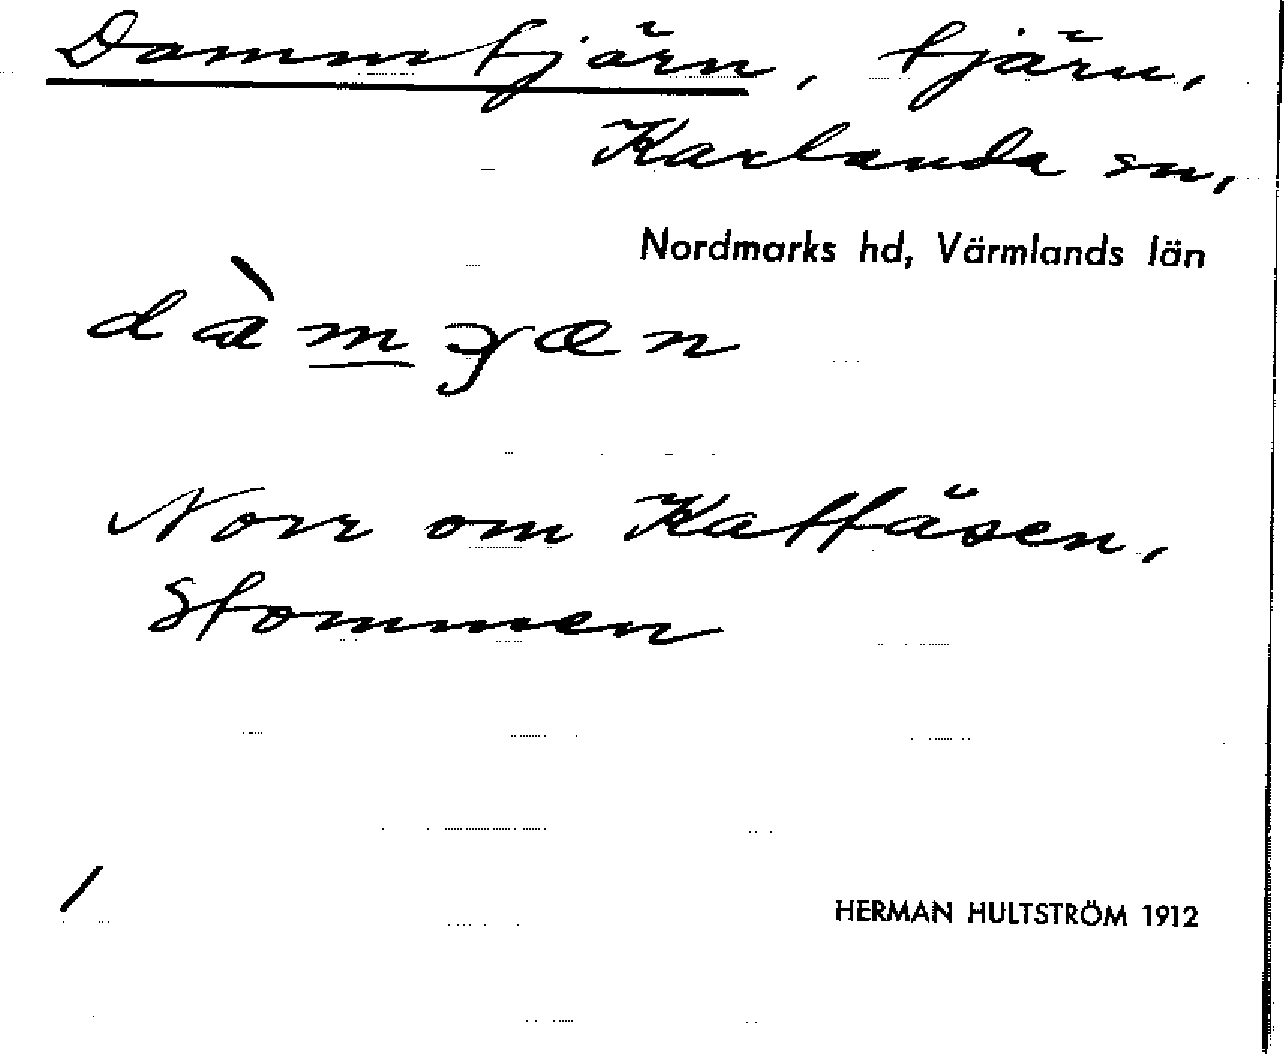 Dammtjärn, tjärn,
Karlanda sn,
Nordmarks hd, Värmlands län
Norr om Kattåsen,
Stommen
/
HERMAN HULTSTRÖM 1912